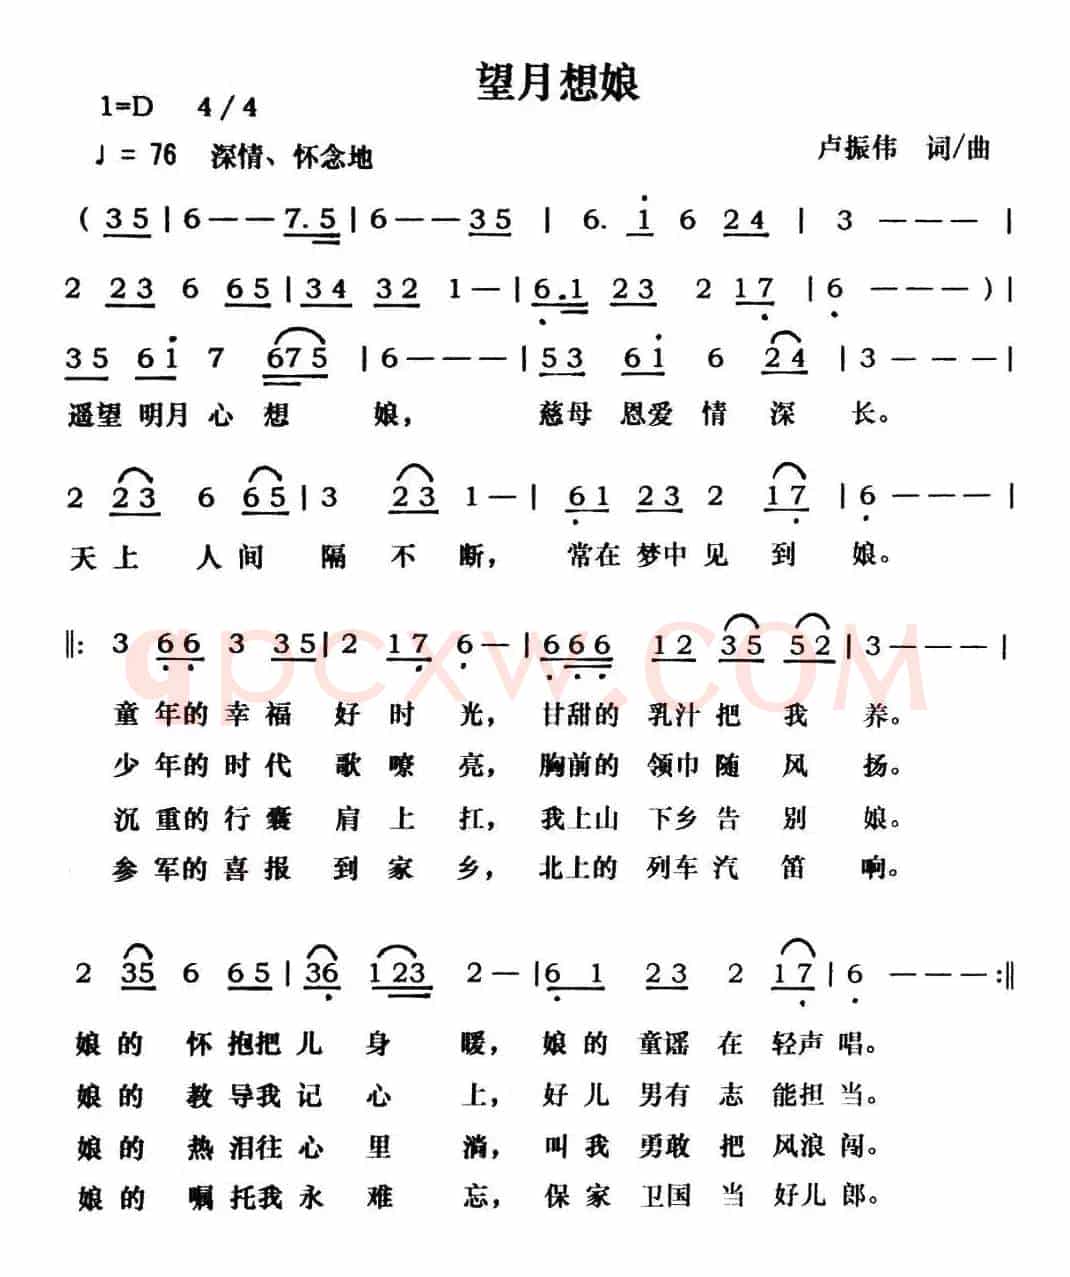 望月想娘
1=D 4/4
♩= 76 深情、怀念地
卢振伟 词/曲
( 3 5 | 6 — — 7. 5 | 6 — — 3 5 | 6. i 6 2 4 | 3 — — — |
2 2 3 6 6 5 | 3 4 3 2 1 — | 6. 1 2 3 2 1 7 | 6 — — — ) |
3 5 6 i 7 6 7 5 | 6 — — — | 5 3 6 i 6 2 4 | 3 — — — |
遥望 明月 心 想 娘， 慈母 恩爱 情 深 长。
2 2 3 6 6 5 | 3 2 3 1 — | 6 1 2 3 2 1 7 | 6 — — — |
天 上 人 间 隔 不 断， 常在 梦中 见 到 娘。
‖: 3 6 6 3 3 5 | 2 1 7 6 — | 6 6 6 1 2 3 5 5 2 | 3 — — — |
qpcxw.COM
童 年的 幸 福 好 时 光， 甘甜的 乳汁 把 我 养。
少 年的 时 代 歌 嘹 亮， 胸前的 领巾 随 风 扬。
沉 重的 行 囊 肩 上 扛， 我上山 下乡 告 别 娘。
参 军的 喜 报 到 家 乡， 北上的 列车 汽 笛 响。
2 3 5 6 6 5 | 3 6 1 2 3 2 — | 6 1 2 3 2 1 7 | 6 — — — :‖
娘 的 怀 抱把 儿 身 暖， 娘 的 童谣 在 轻声 唱。
娘 的 教 导我 记 心 上， 好 儿 男有 志 能担 当。
娘 的 热 泪往 心 里 淌， 叫 我 勇敢 把 风浪 闯。
娘 的 嘱 托我 永 难 忘， 保 家 卫国 当 好儿 郎。